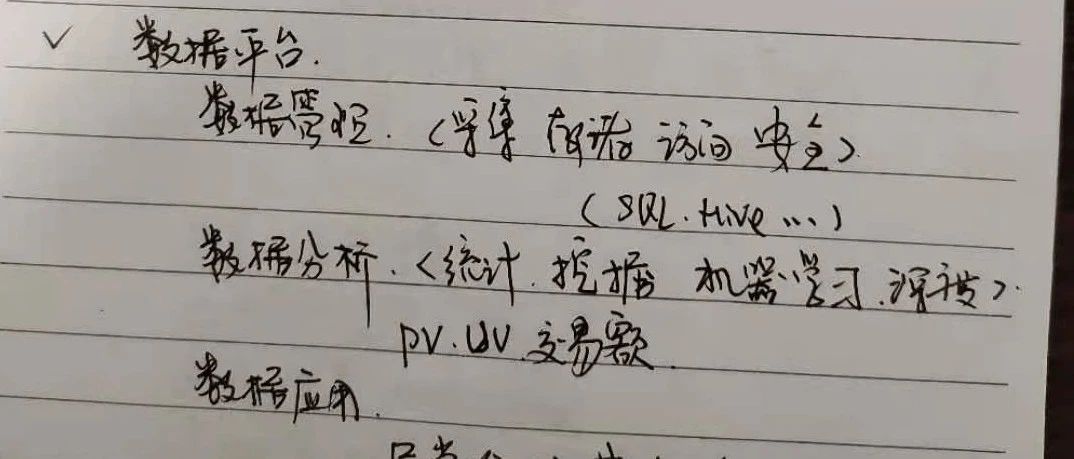 ✓ 数据平台.
数据管理.(采集 存储 访问 安全)
(SQL. Hive ...)
数据分析.<统计.挖掘 机器学习.深度>.
PV.UV.交易额.
数据应用.